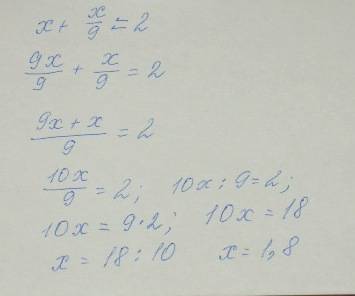 x + x/9 = 2
9x/9 + x/9 = 2
9x + x/9 = 2
10x/9 = 2; 10x : 9 = 2;
10x = 9·2; 10x = 18
x = 18 : 10 x = 1,8